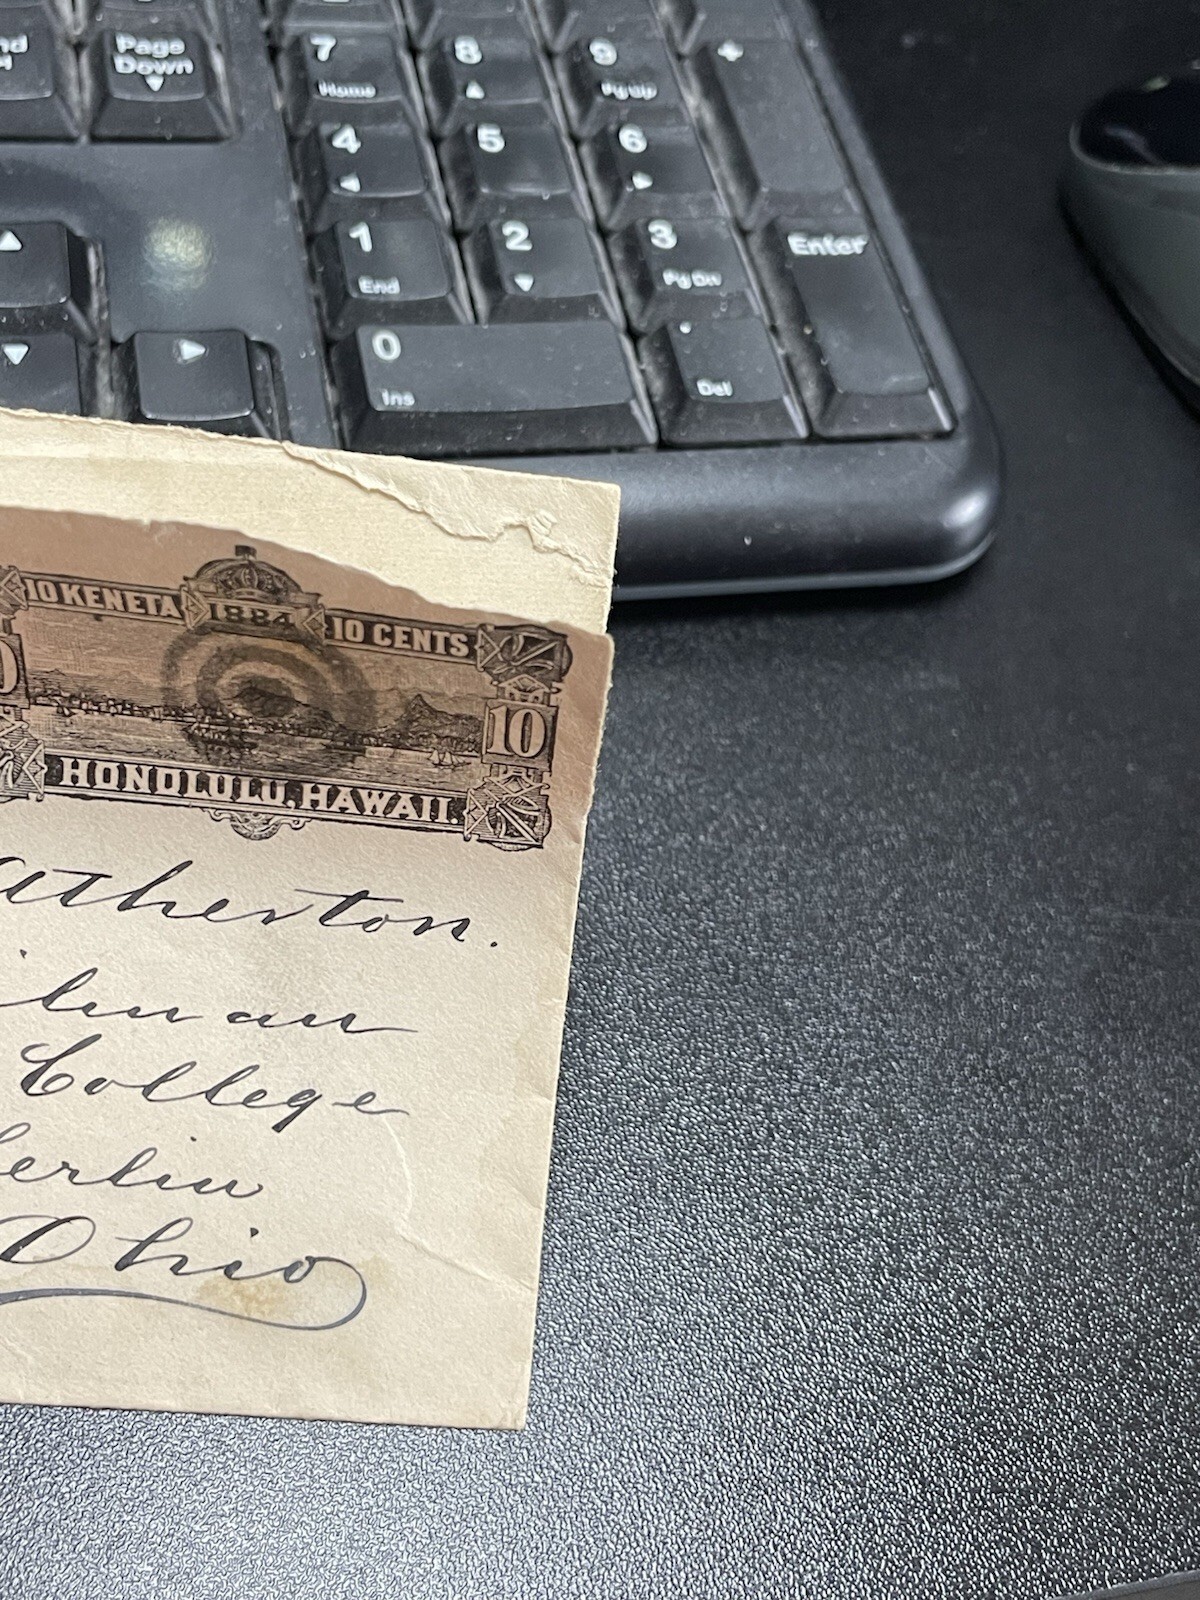 Page
Down
7
Home
8
9
Pg Up
+
4
5
6
1
End
2
3
Pg Dn
Enter
0
Ins
.
Del
10 KENETA
1884
10 CENTS
10
HONOLULU, HAWAII.
atherton.
College
erlin
Ohio